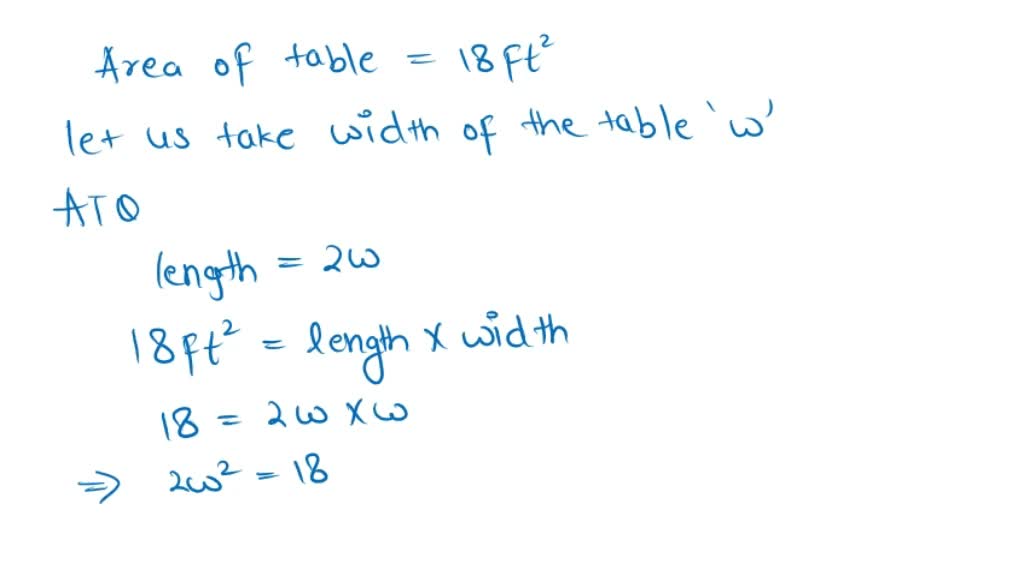 Area of table = 18ft²
let us take width of the table 'w'
ATQ
length = 2w
18ft² = length × width
18 = 2w × w
⇒ 2w² = 18